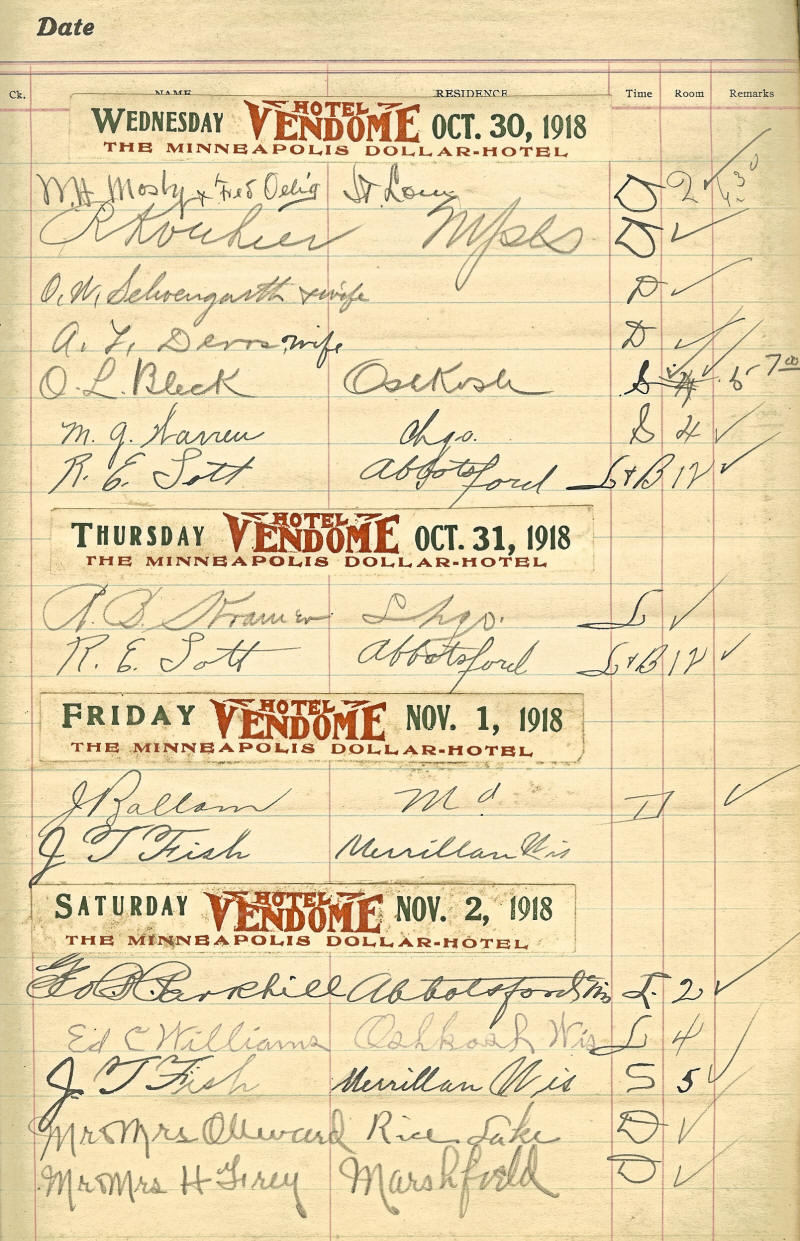 Date
Ck. NAME RESIDENCE Time Room Remarks
WEDNESDAY HOTEL VENDOME OCT. 30, 1918
THE MINNEAPOLIS DOLLAR-HOTEL
W.H. Mosby & Fred St. Louis D 2 4.30
Mpls D
O. W. Schoengarth & wife D
A. F. wife D
O. L. Bleck Oshkosh S 4 5 7 00
M. J. Warren Chgo. S 4
R. E. Lott Abbotsford L+B 12
THURSDAY HOTEL VENDOME OCT. 31, 1918
THE MINNEAPOLIS DOLLAR-HOTEL
A. B. Kramer Chgo. L
R. E. Lott Abbotsford L+B 12
FRIDAY HOTEL VENDOME NOV. 1, 1918
THE MINNEAPOLIS DOLLAR-HOTEL
J Ballam D
J T Fish Merrillan Wis
SATURDAY HOTEL VENDOME NOV. 2, 1918
THE MINNEAPOLIS DOLLAR-HOTEL
Geo B. Parkhill Abbotsford Wis L. 2
Ed C Williams Oshkosh Wis L 4
J T Fish Merrillan Wis S 5
Mr & Mrs Rice Lake D
Mr & Mrs H Firey Marshfield D